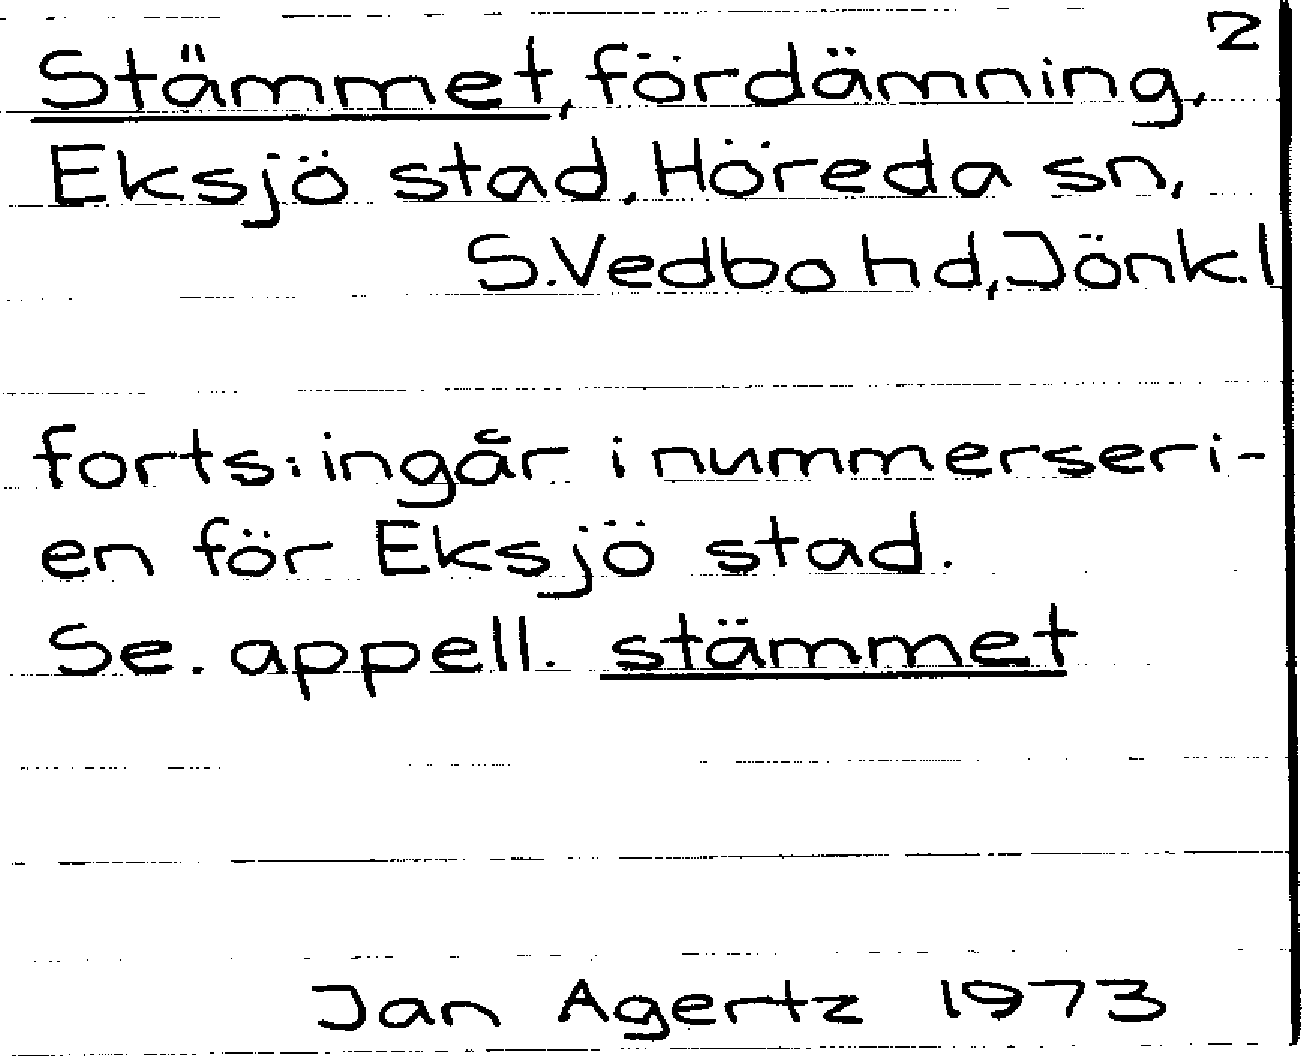 2
Stämmet, fördämning,
Eksjö stad, Höreda sn,
S.Vedbo hd, Jönk.l
forts: ingår i nummerseri-
en för Eksjö stad.
Se. appell. stämmet
Jan Agertz 1973